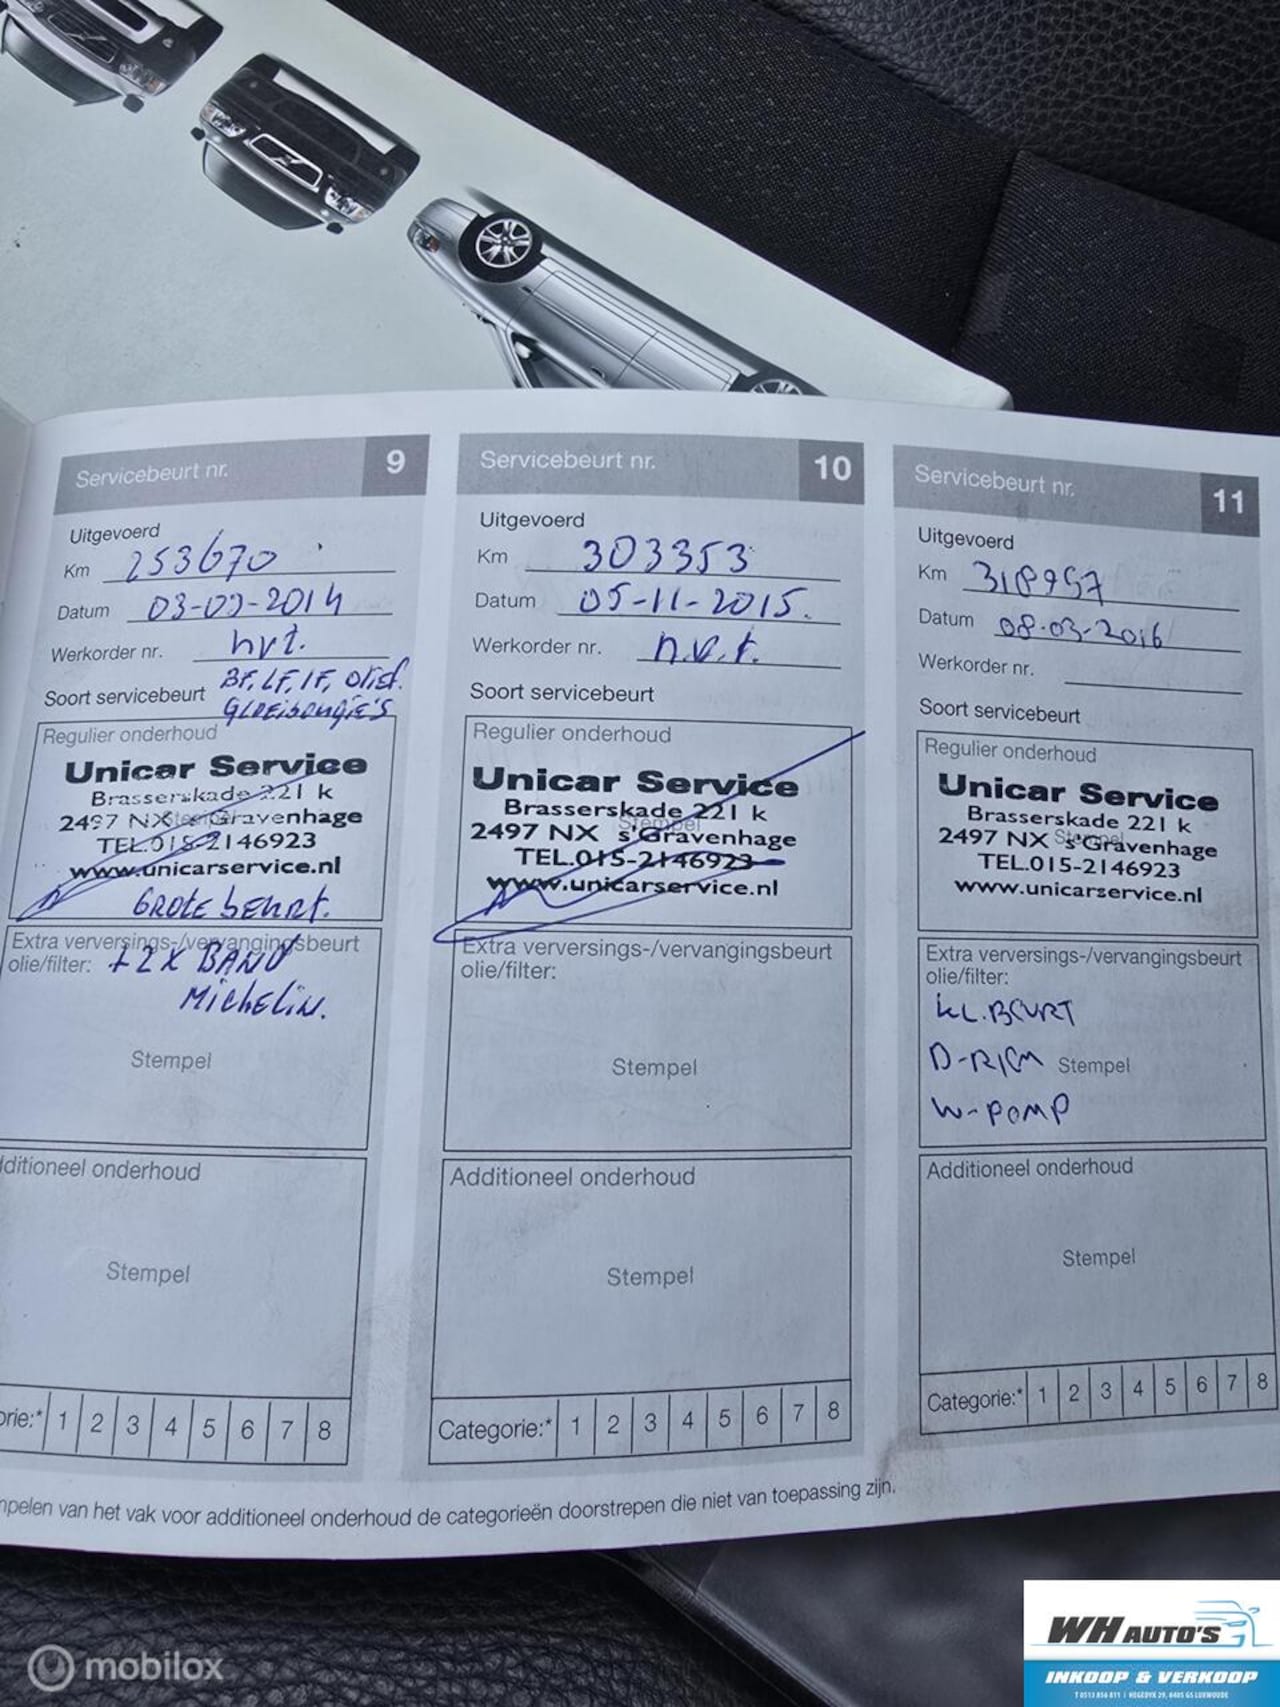 Servicebeurt nr. 9
Uitgevoerd
Km 253670
Datum 03-03-2014
Werkorder nr. nvt.
Soort servicebeurt BF, LF, IF, olief.
Regulier onderhoud
Unicar Service
Brasserskade 221 k
2497 NX s'Gravenhage
TEL.015-2146923
www.unicarservice.nl
GROTE beurt.
Extra verversings-/vervangingsbeurt
olie/filter: +2X BAND
Michelin.
Stempel
dditioneel onderhoud
Stempel
orie:* 1 2 3 4 5 6 7 8
Servicebeurt nr. 10
Uitgevoerd
Km 303353
Datum 05-11-2015.
Werkorder nr. n.v.t.
Soort servicebeurt
Regulier onderhoud
Unicar Service
Brasserskade 221 k
Stempel
2497 NX s'Gravenhage
TEL.015-2146923
www.unicarservice.nl
Extra verversings-/vervangingsbeurt
olie/filter:
Stempel
Additioneel onderhoud
Stempel
Categorie:* 1 2 3 4 5 6 7 8
Servicebeurt nr. 11
Uitgevoerd
Km 318957
Datum 08-03-2016
Werkorder nr.
Soort servicebeurt
Regulier onderhoud
Unicar Service
Brasserskade 221 k
2497 NX s'Gravenhage
Stempel
TEL.015-2146923
www.unicarservice.nl
Extra verversings-/vervangingsbeurt
olie/filter:
KL.BEURT
D-RIEM Stempel
W-POMP
Additioneel onderhoud
Stempel
Categorie:* 1 2 3 4 5 6 7 8
mpelen van het vak voor additioneel onderhoud de categorieën doorstrepen die niet van toepassing zijn.
mobilox
WH AUTO'S
INKOOP & VERKOOP
T 0513 856 811 | HEGEDYK 29, 8405 GS LUXWOUDE